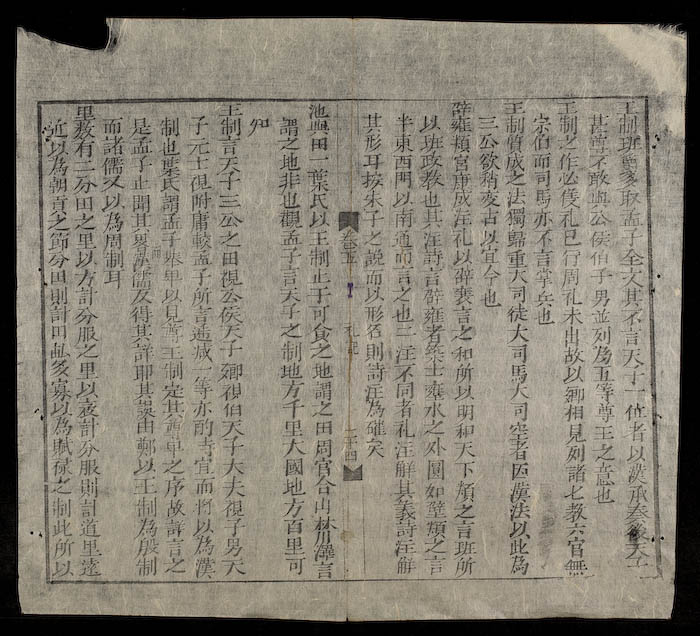 王制班爵多取孟子全文其不言天子一位者以漢承秦後天子
甚尊不敢與公侯伯子男並列為五等尊王之意也
王制之作必儀礼已行周礼未出故以鄉相見列諸七教六官無
宗伯而司馬亦不言掌兵也
王制質成之法獨歸重大司徒大司馬大司空者因漢法以此為
三公欲稍變古以宜今也
辟雍頖宮康成注礼以辟雍言之和所以明和天下頖之言班所
以班政教也其注詩言辟雍者築土雍水之外圓如璧頖之言
半東西門以南通而言之也二注不同者礼注解其義詩注解
其形耳按朱子之說而以形名則詩注為確矣
卷五
礼記
二十四
池與田一葉氏以王制止于可食之地謂之田周官合山林川澤言
謂之地非也觀孟子言天子之制地方千里大國地方百里可
知
王制言天子三公之田視公侯天子之卿視伯天子大夫視子男天
子元士視附庸較孟子所言遞減一等亦酌時宜而將以為漢
制也葉氏謂孟子舉卑以見尊王制定其尊卑之序故詳言之
是孟子止聞其畧漢儒反得其詳耶其誤由鄭以王制為殷制
而諸儒又以為周制耳
里數有二分田之里以方計分服之里以袤計分服則計道里遠
近以為朝貢之節分田則計田畝多寡以為賦祿之制此所以